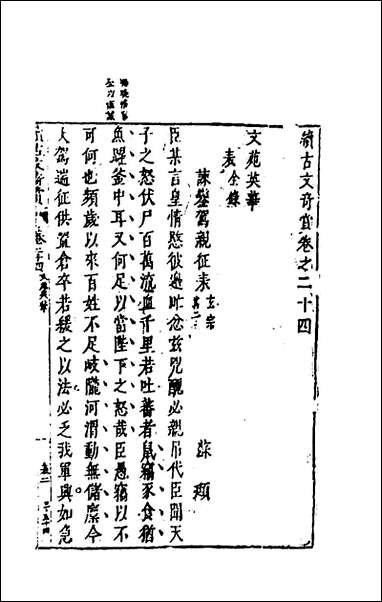 續古文奇賞卷之二十四
文苑英華
表全錄
諫鑾駕親征表 玄宗 其二 蘇頲
臣某言皇情愍彼邊甿忿玆兇醜必親吊伐臣聞天
子之怒伏尸百萬流血千里若吐蕃者鼠竊豕食猶
魚躍釜中耳又何足以當陛下之怒哉臣愚竊以不
可何也頻歲以來百姓不足岐隴河渭動無儲廩今
大駕遄征供資倉卒若緩之以法必乏我軍興如急
續古文奇賞 卷二十四 文苑英華 表二